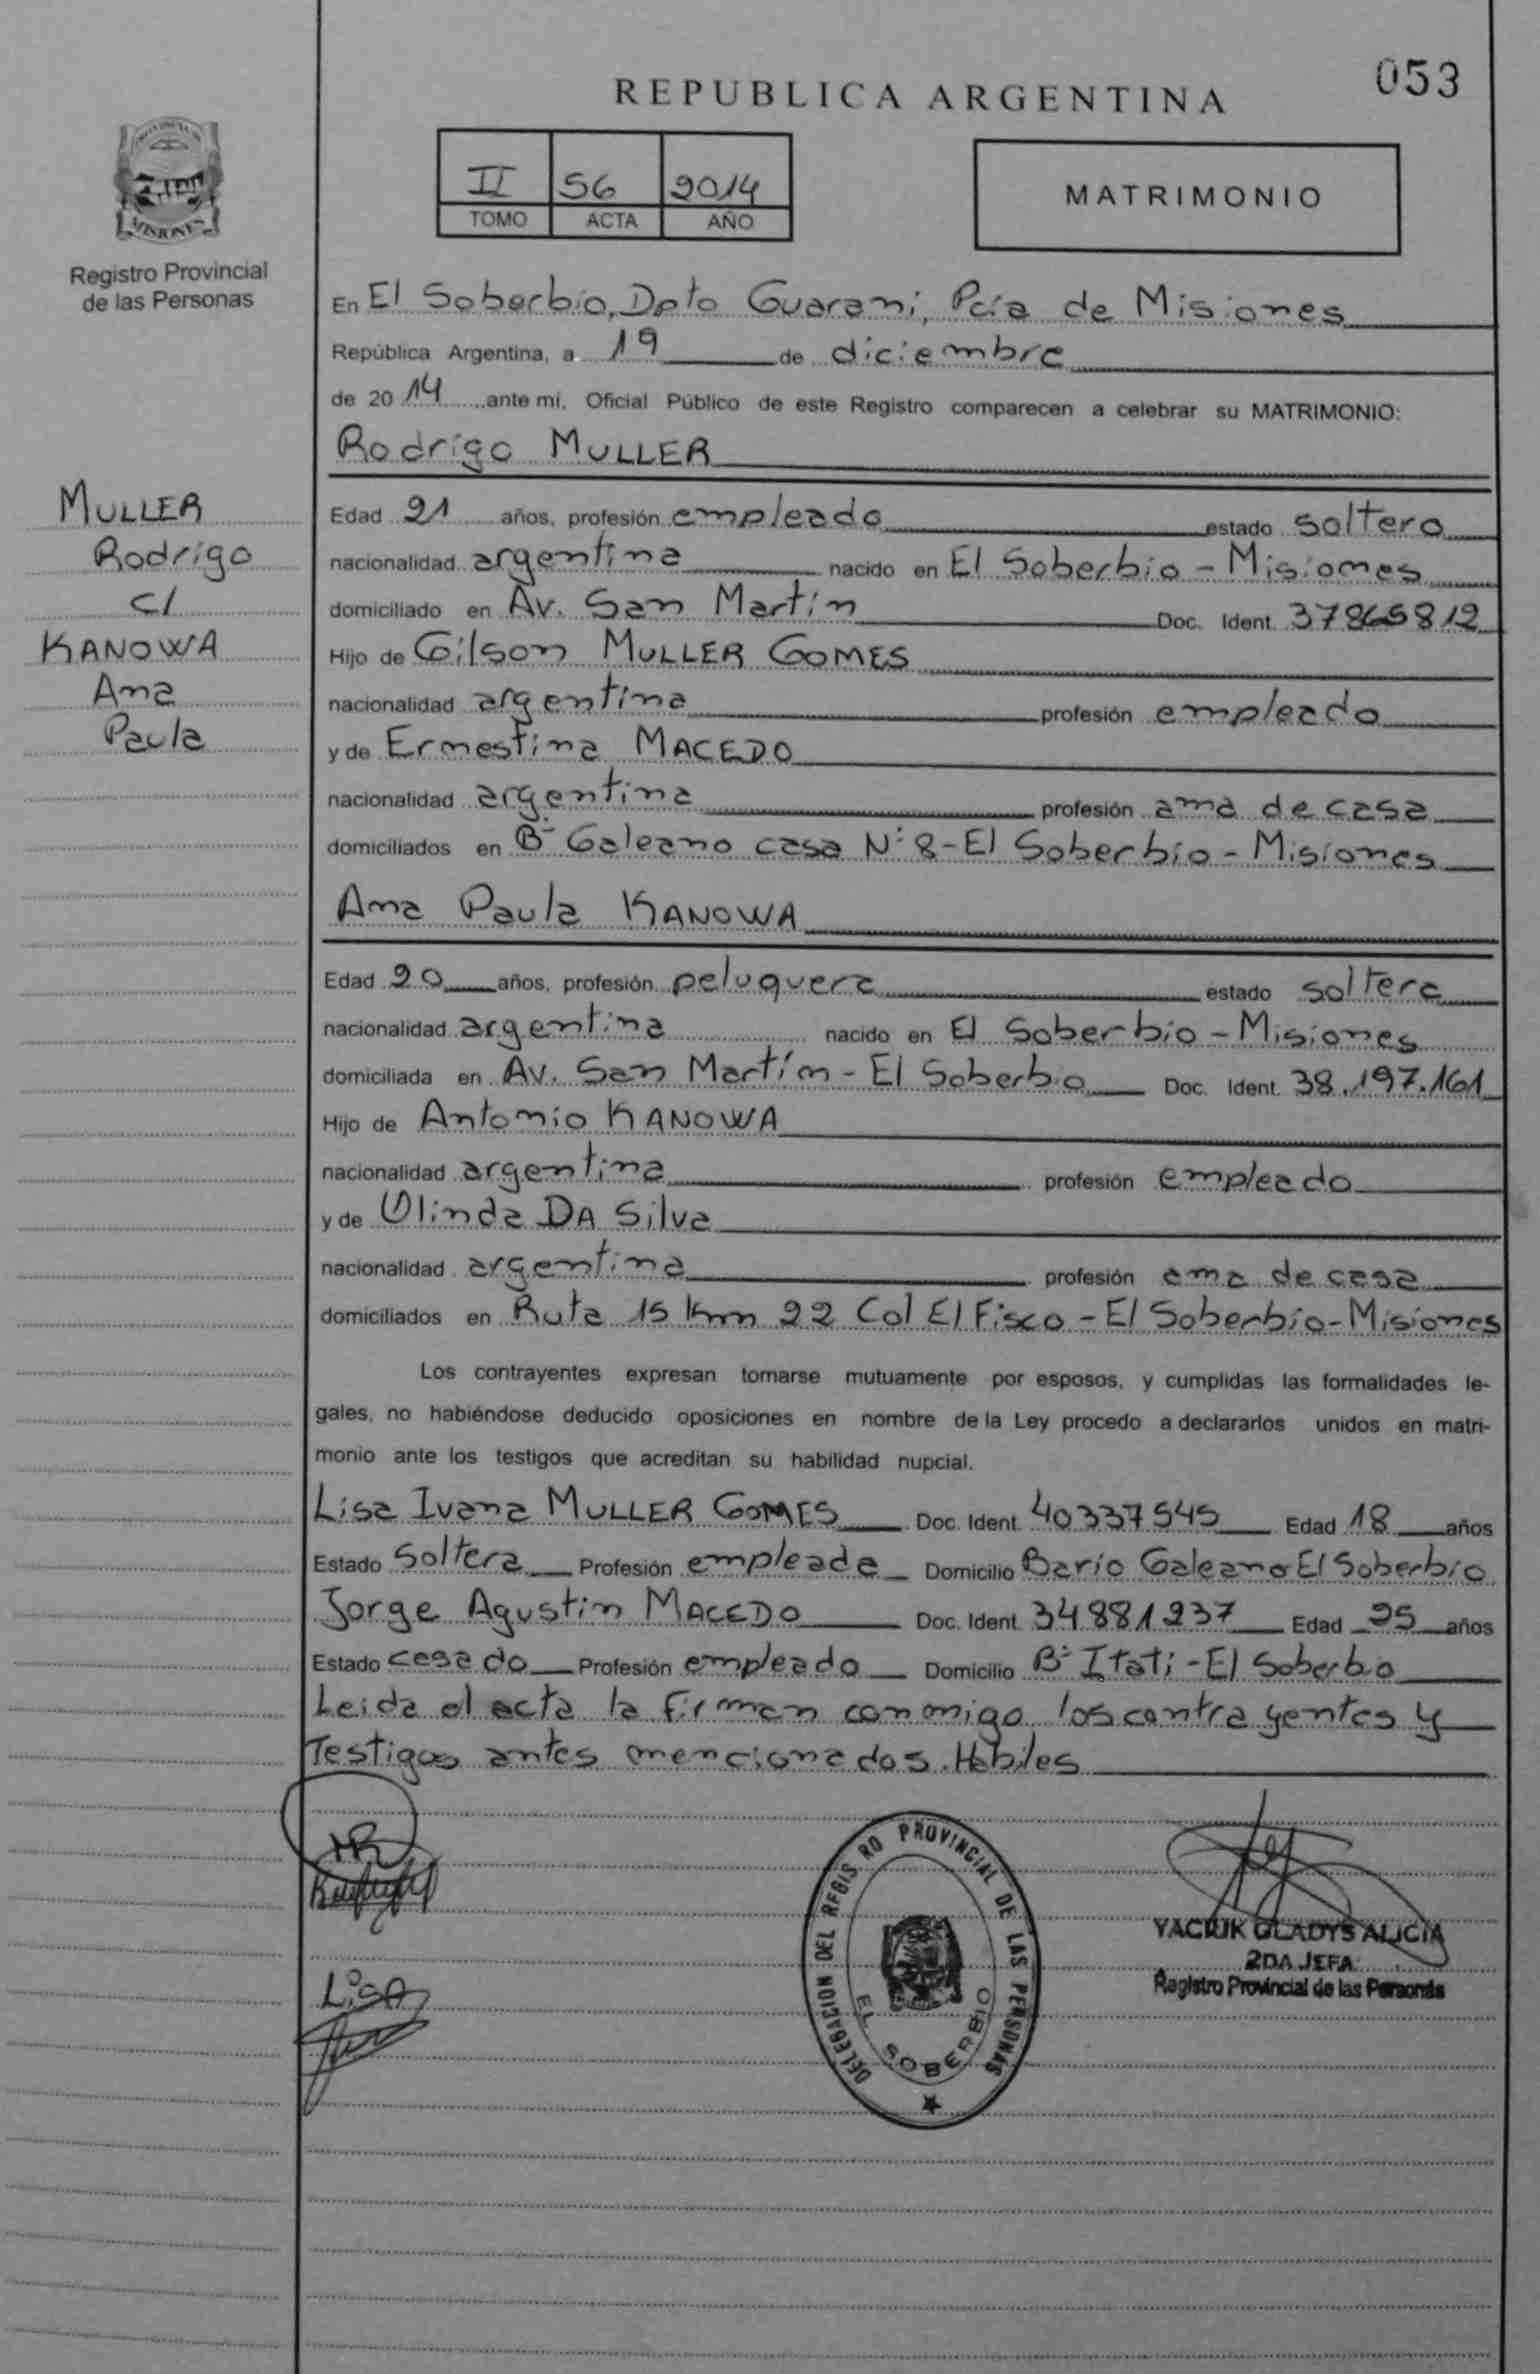 053
REPUBLICA ARGENTINA
II 56 2014
TOMO ACTA AÑO
MATRIMONIO
MISIONES
Registro Provincial
de las Personas
En El Soberbio, Dpto Guarani, Pcia de Misiones
República Argentina, a 19 de diciembre
de 2014 ante mí, Oficial Público de este Registro comparecen a celebrar su MATRIMONIO:
Rodrigo MULLER
MULLER
Rodrigo
C/
KANOWA
Ana
Paula
Edad 21 años, profesión empleado estado soltero
nacionalidad argentina nacido en El Soberbio - Misiones
domiciliado en Av. San Martín Doc. Ident. 37865812
Hijo de Gilson MULLER GOMES
nacionalidad argentina profesión empleado
y de Ernestina MACEDO
nacionalidad argentina profesión ama de casa
domiciliados en Bº Galeano casa Nº 8 - El Soberbio - Misiones
Ana Paula KANOWA
Edad 20 años, profesión peluquera estado soltera
nacionalidad argentina nacido en El Soberbio - Misiones
domiciliada en Av. San Martín - El Soberbio Doc. Ident. 38.197.161
Hijo de Antonio KANOWA
nacionalidad argentina profesión empleado
y de Olinda DA Silva
nacionalidad argentina profesión ama de casa
domiciliados en Ruta 15 Km 22 Col El Fisco - El Soberbio - Misiones
Los contrayentes expresan tomarse mutuamente por esposos, y cumplidas las formalidades le-
gales, no habiéndose deducido oposiciones en nombre de la Ley procedo a declararlos unidos en matri-
monio ante los testigos que acreditan su habilidad nupcial.
Lisa Ivana MULLER GOMES Doc. Ident. 40337545 Edad 18 años
Estado Soltera Profesión empleada Domicilio Bario Galeano El Soberbio
Jorge Agustin MACEDO Doc. Ident. 34881237 Edad 25 años
Estado casado Profesión empleado Domicilio Bº Itati - El Soberbio
Leida el acta la firman conmigo los contrayentes y
Testigos antes mencionados. Habiles
DELEGACION DEL REGIS RO PROVINCIAL DE LAS PERSONAS
EL SOBERBIO
LisA
YACIUK GLADYS ALICIA
2DA JEFA
Registro Provincial de las Personas